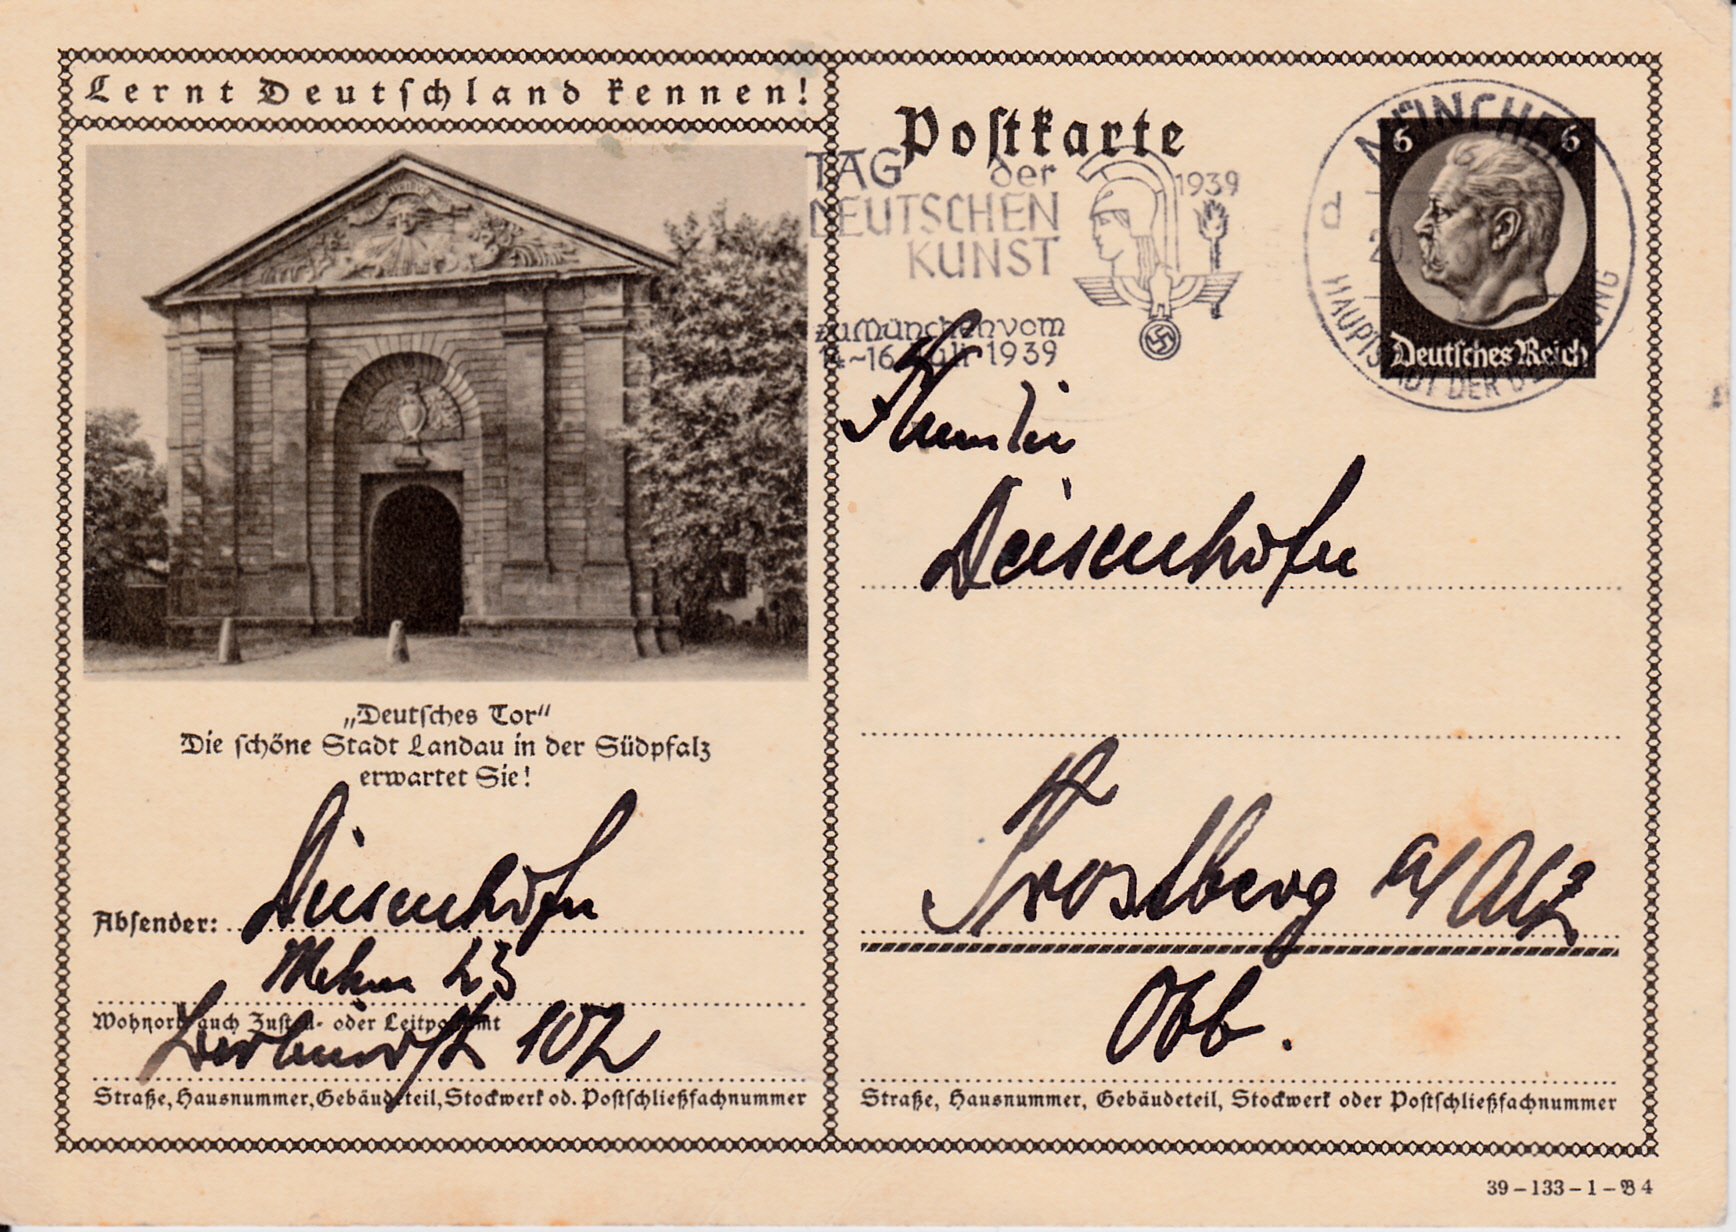 Lernt Deutschland kennen!
„Deutsches Tor“
Die schöne Stadt Landau in der Südpfalz
erwartet Sie!
Absender: Deisenhofer
23
Wohnort, auch Zustell- oder Leitpostamt
102
Straße, Hausnummer, Gebäudeteil, Stockwerk od. Postschließfachnummer
Postkarte
TAG der
DEUTSCHEN
KUNST
1939
zu München vom
14-16. Juli 1939
MÜNCHEN
d
HAUPTSTADT DER BEWEGUNG
6 6
Deutsches Reich
Familie
Deisenhofer
Trostberg a/Alz
Obb.
Straße, Hausnummer, Gebäudeteil, Stockwerk oder Postschließfachnummer
39-133-1-B 4